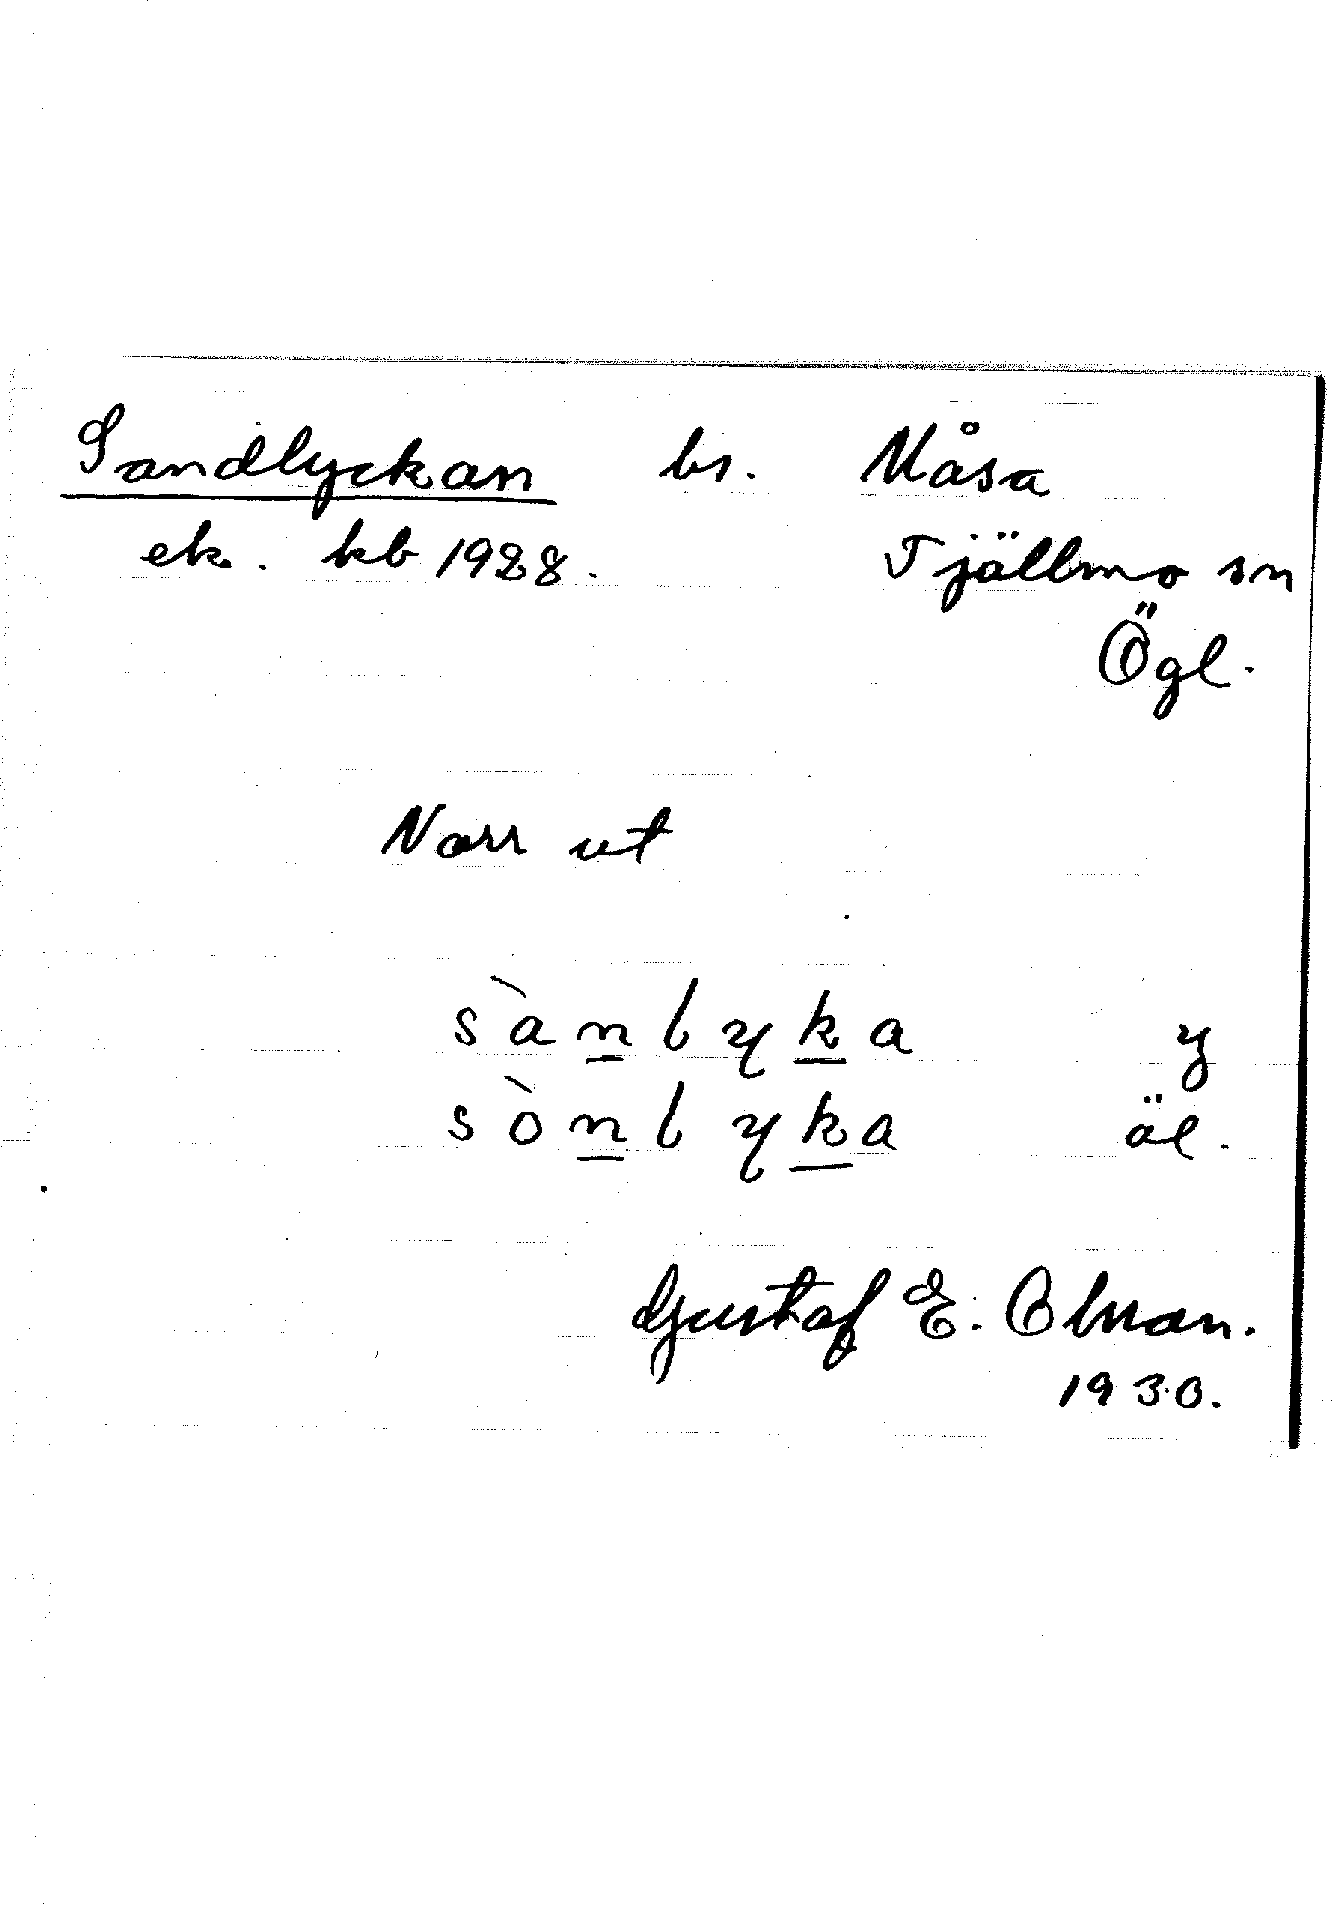 Sandlyckan bs. Måsa
ek. kb 1928. Tjällmo sn
Ögl.
Norr ut
sànlyka y
sònlyka äl.
Gustaf E.
1930.